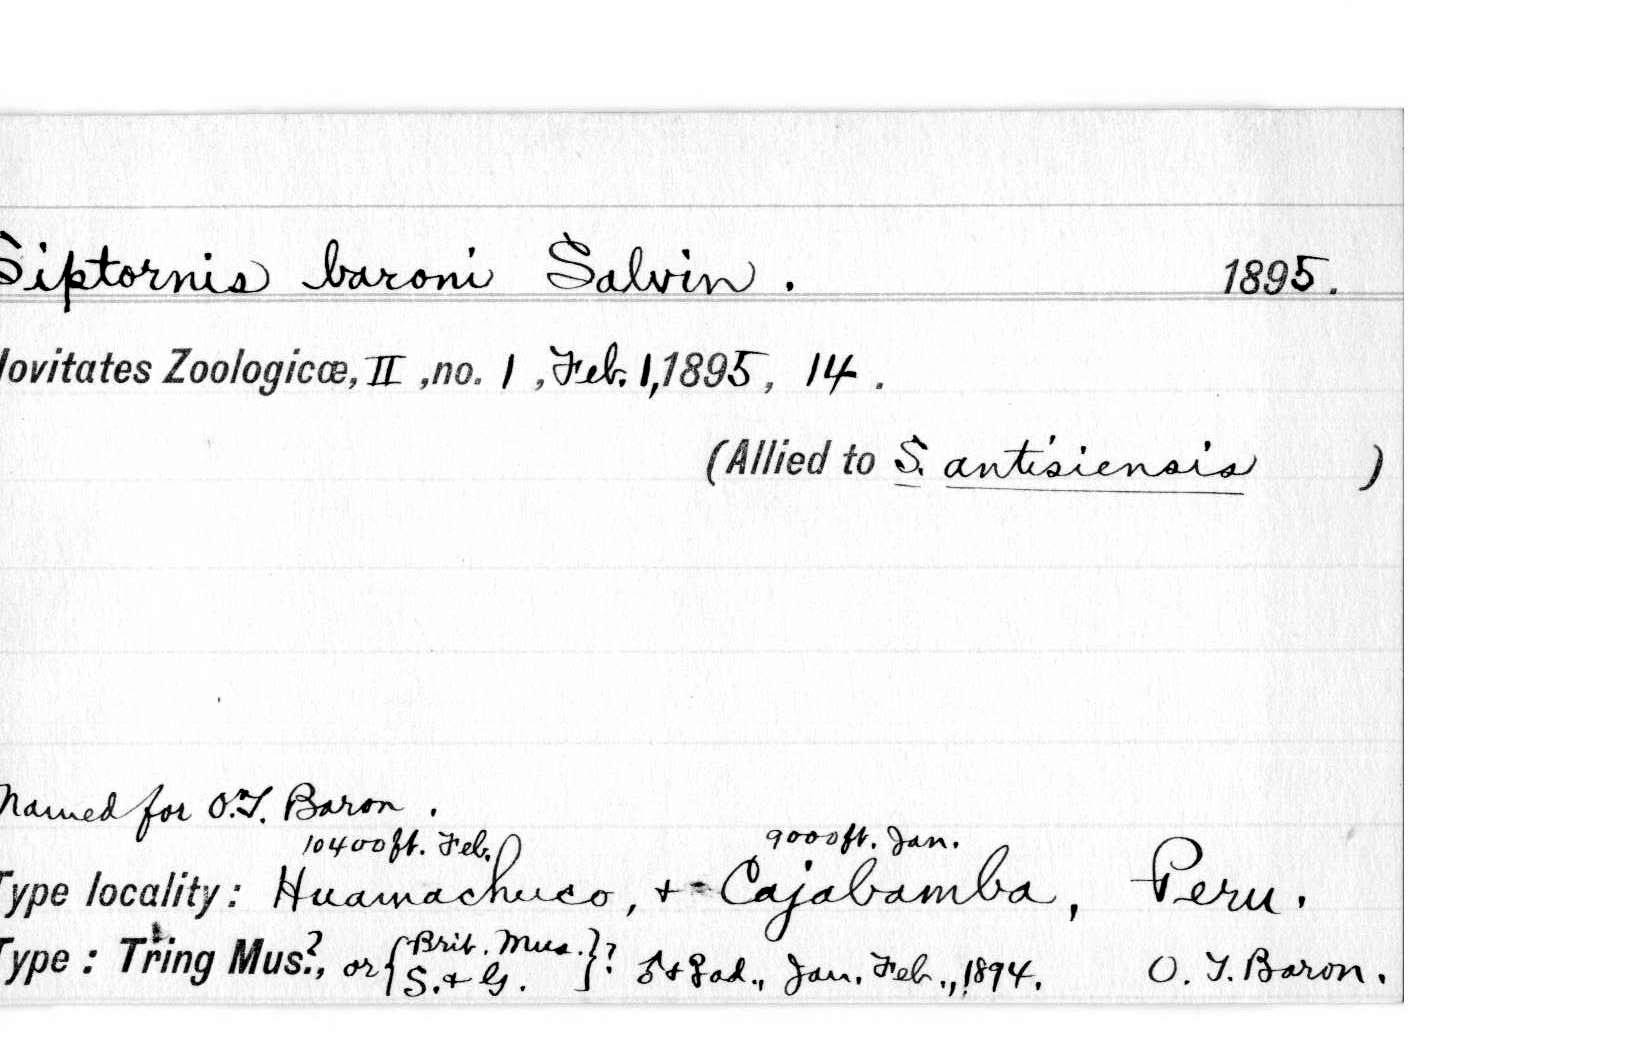 Siptornis baroni Salvin. 1895.
Novitates Zoologicæ, II, no. 1, Feb. 1, 1895, 14.
(Allied to S. antisiensis )
Named for O.T. Baron.
10400ft. Feb. 9000ft. Jan.
Type locality: Huamachuco, + Cajabamba, Peru.
Type: Tring Mus.?, or {Brit. Mus. S. + G.}? ♂ + ♀ ad., Jan. Feb., 1894. O. T. Baron.